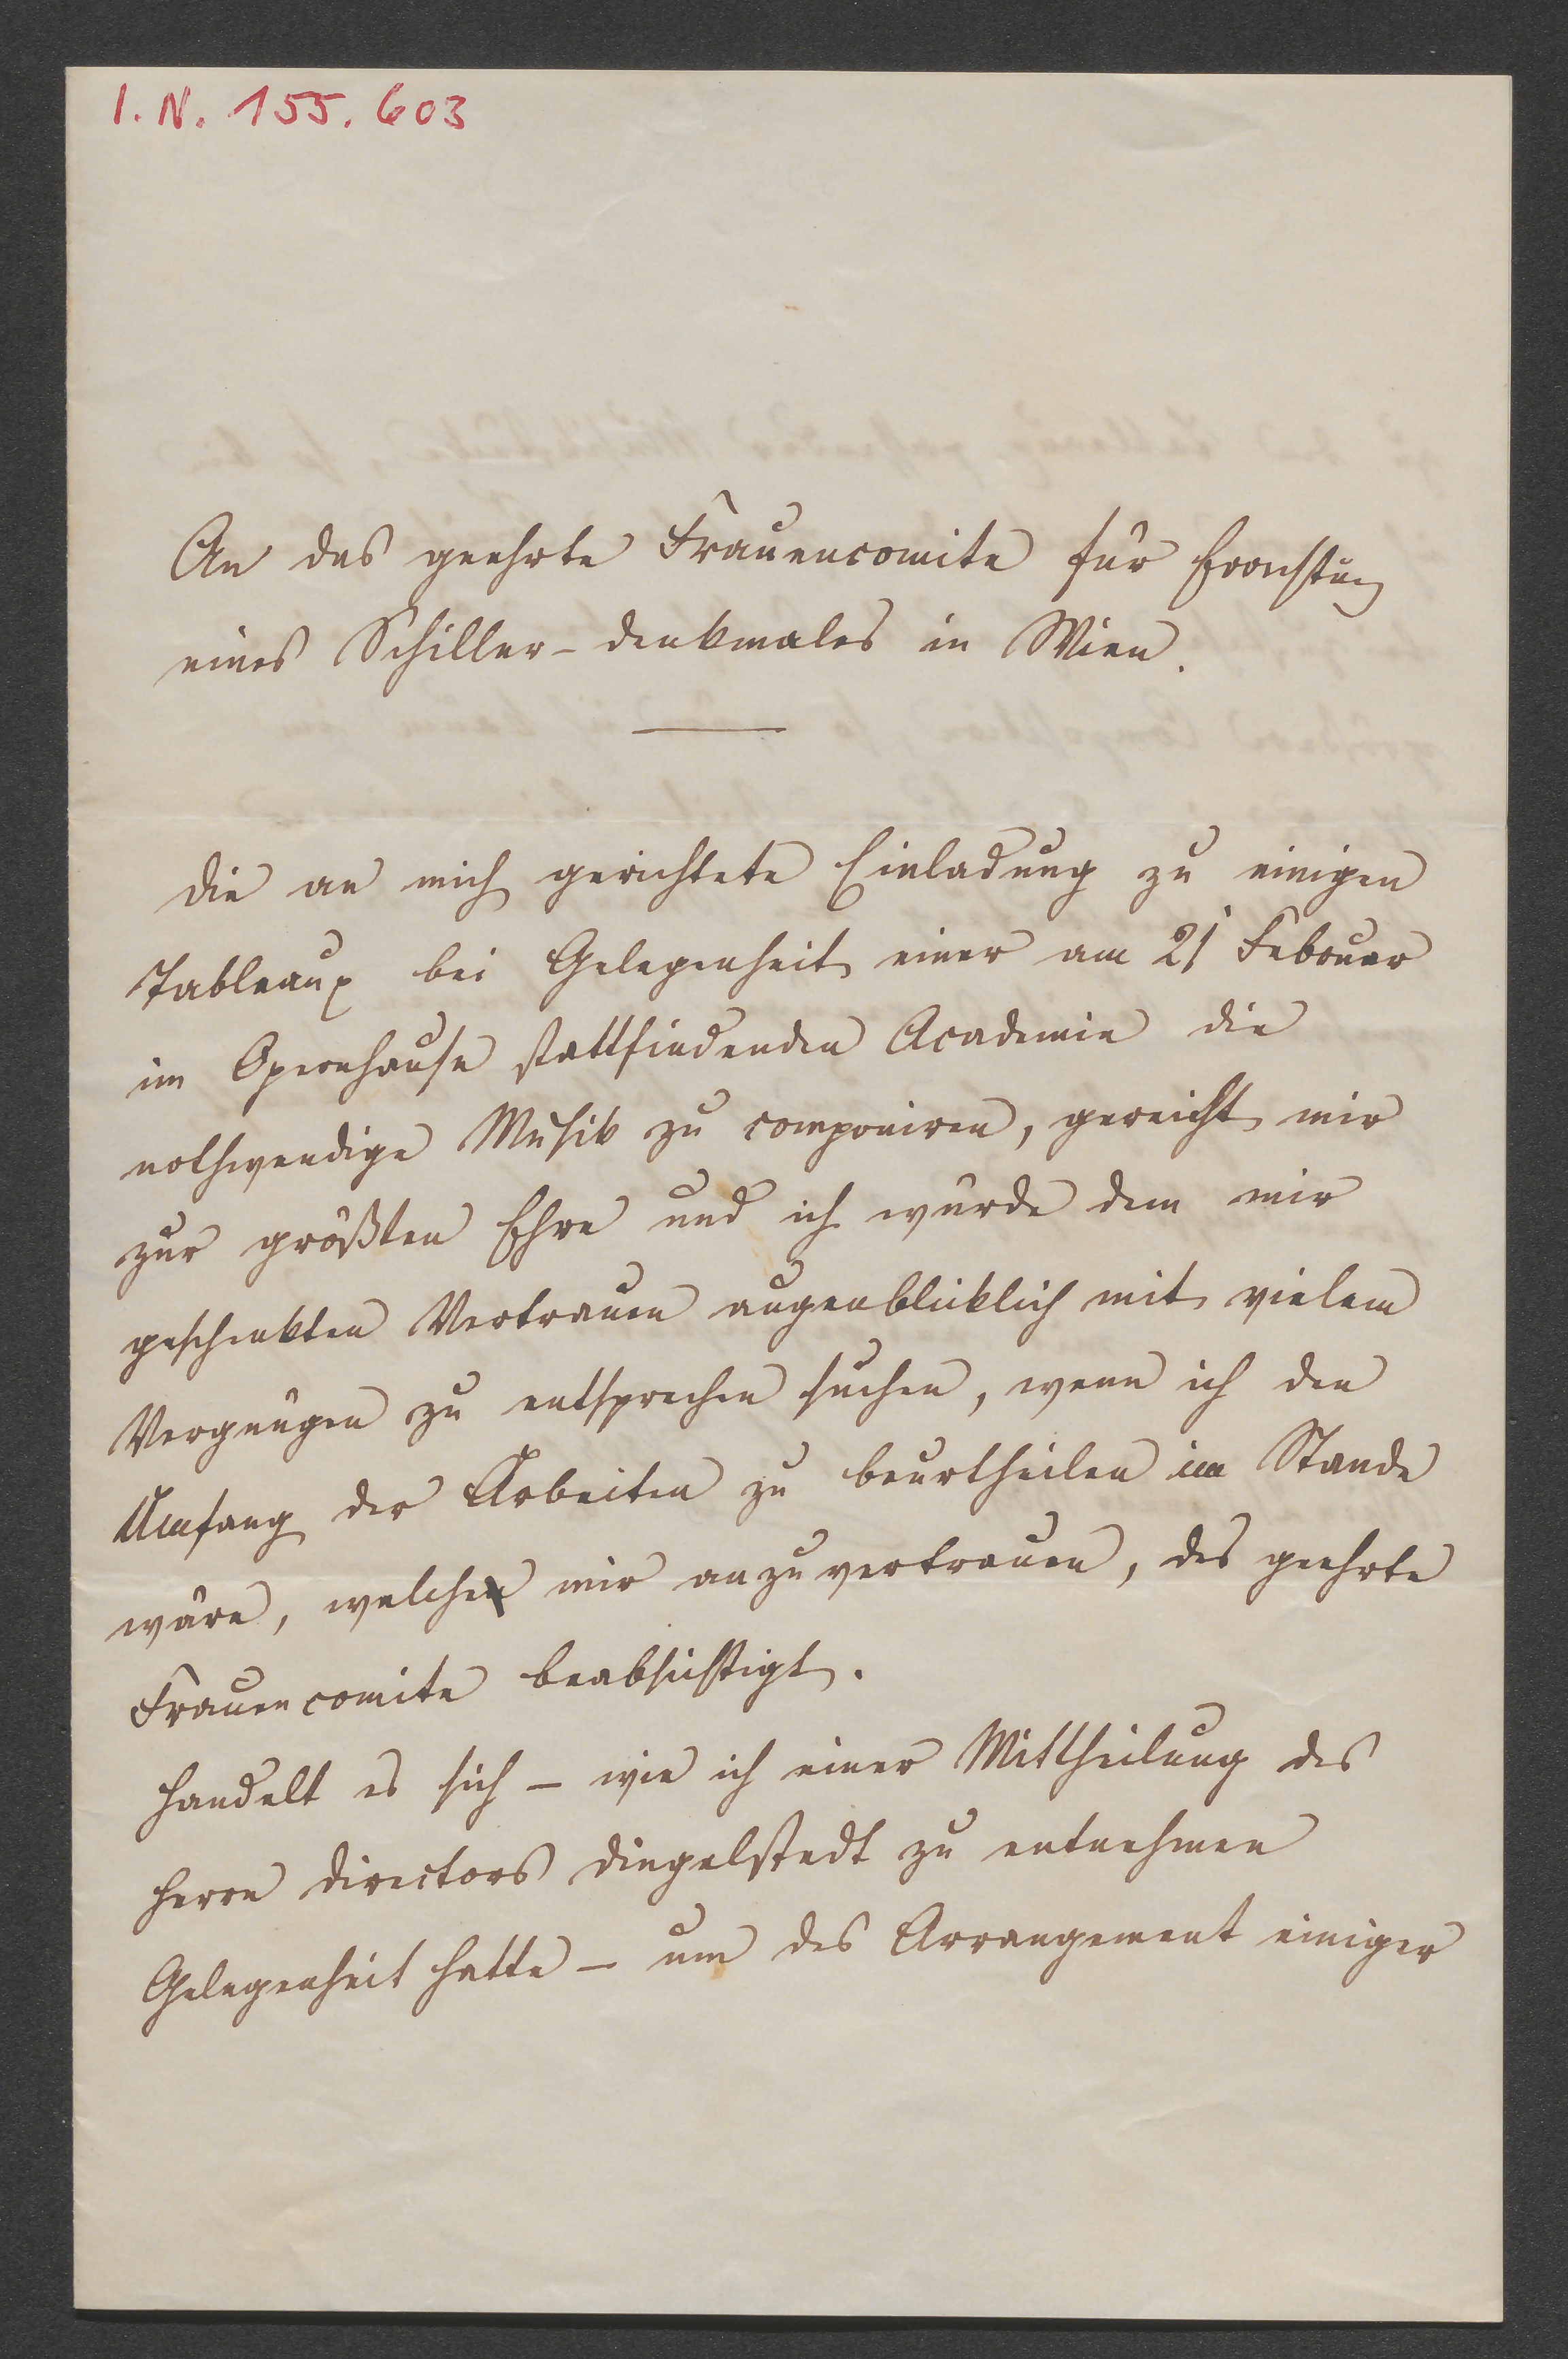 I. N. 155.603
An das geehrte Frauencomite für Errichtung
eines Schiller-Denkmales in Wien.
Die an mich gerichtete Einladung zu einigen
Tableaux bei Gelegenheit einer am 21 Februar
im Opernhause stattfindenden Academie die
nothwendige Musik zu componiren, gereicht mir
zur größten Ehre und ich würde dem mir
geschenkten Vertrauen augenblicklich mit vielem
Vergnügen zu entsprechen suchen, wenn ich den
Umfang der Arbeiten zu beurtheilen im Stande
wäre, welche mir anzuvertrauen, das geehrte
Frauencomite beabsichtigt.
Handelt es sich – wie ich einer Mittheilung des
Herrn Directors Dingelstedt zu entnehmen
Gelegenheit hatte – um das Arrangement einiger